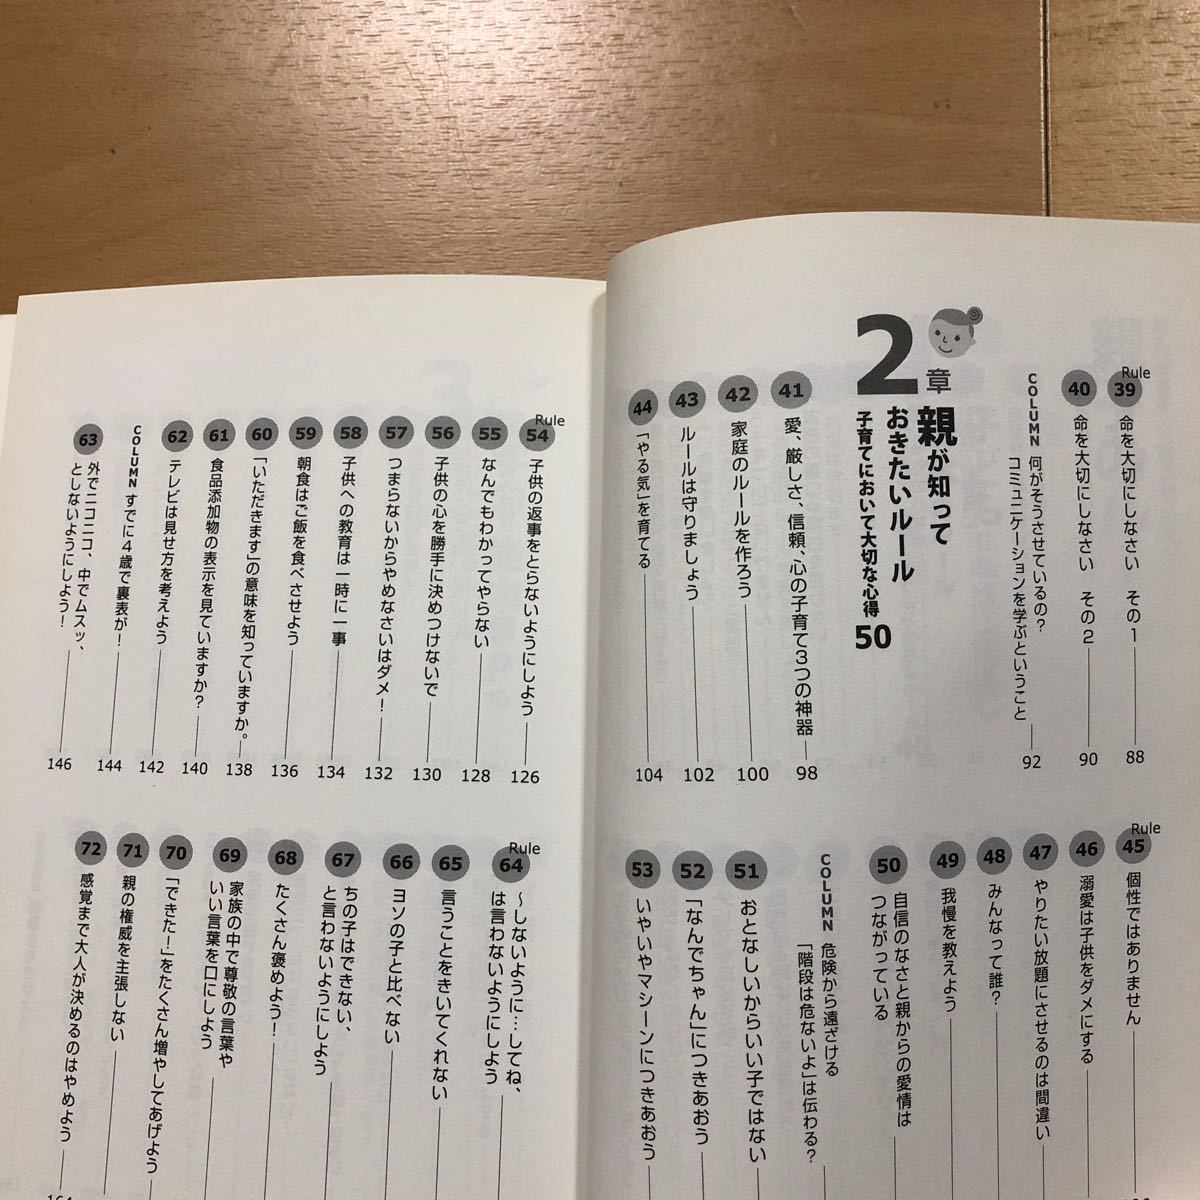 Rule
39 命を大切にしなさい その1 88
40 命を大切にしなさい その2 90
COLUMN 何がそうさせているの?
コミュニケーションを学ぶということ 92
2章
親が知って
おきたいルール
子育てにおいて大切な心得50
41 愛、厳しさ、信頼、心の子育て3つの神器 98
42 家庭のルールを作ろう 100
43 ルールは守りましょう 102
44 「やる気」を育てる 104
Rule
45 個性ではありません
46 溺愛は子供をダメにする
47 やりたい放題にさせるのは間違い
48 みんなって誰?
49 我慢を教えよう
50 自信のなさと親からの愛情は
つながっている
COLUMN 危険から遠ざける
「階段は危ないよ」は伝わる?
51 おとなしいからいい子ではない
52 「なんでちゃん」につきあおう
53 いやいやマシーンにつきあおう
Rule
54 子供の返事をとらないようにしよう 126
55 なんでもわかってやらない 128
56 子供の心を勝手に決めつけないで 130
57 つまらないからやめなさいはダメ! 132
58 子供への教育は一時に一事 134
59 朝食はご飯を食べさせよう 136
60 「いただきます」の意味を知っていますか。 138
61 食品添加物の表示を見ていますか? 140
62 テレビは見せ方を考えよう 142
COLUMN すでに4歳で裏表が! 144
63 外でニコニコ、中でムスッ、
としないようにしよう! 146
Rule
64 〜しないように…してね、
は言わないようにしよう
65 言うことをきいてくれない
66 ヨソの子と比べない
67 ちの子はできない、
と言わないようにしよう
68 たくさん褒めよう!
69 家族の中で尊敬の言葉や
いい言葉を口にしよう
70 「できた!」をたくさん増やしてあげよう
71 親の権威を主張しない
72 感覚まで大人が決めるのはやめよう 164